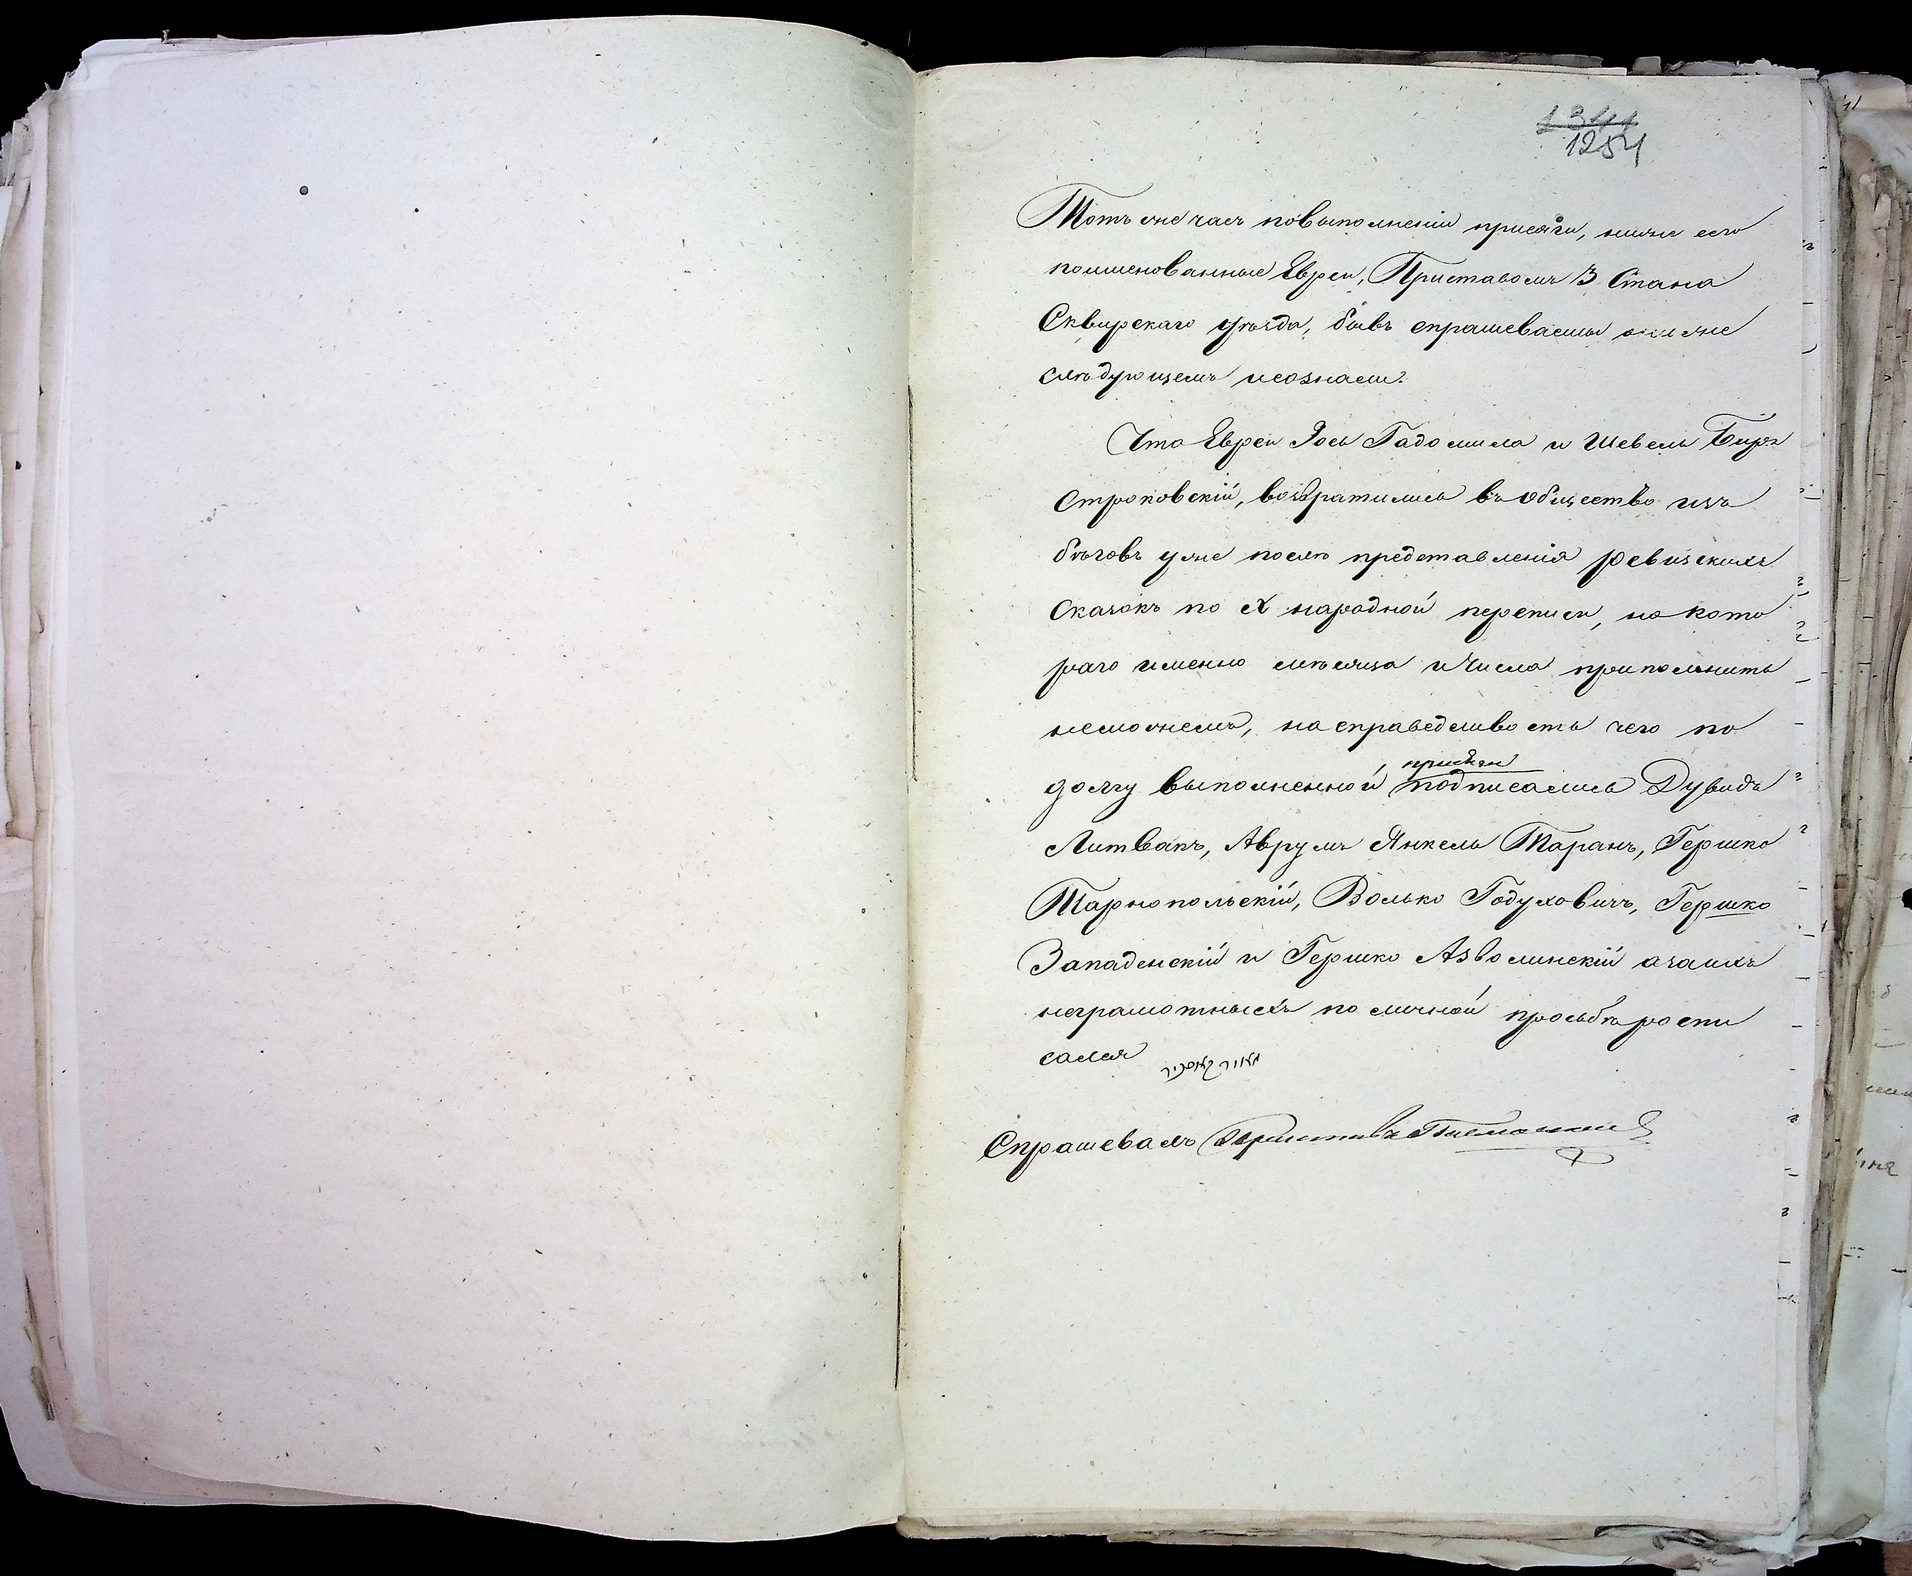 1254
Тотъ же часъ повыполненіи присяги, ниже сего
поименованные Евреи, Приставомъ 3 Стана
Сквирскаго уѣзда, бывъ спрашеваемы
слѣдующемъ исознаем:
Что Евреи Іось Гадомила и Шевель
Строковскій, возвратились въ общество изъ
бѣговъ уже послѣ представленія ревизскихъ
сказокъ по X народной переписи, но кото
раго именно мѣсяца и числа припомнить
неможемъ, на справедливость чего по
присяги
долгу выполненной подписались Дувидъ
Литвакъ, Аврумъ Янкель Таранъ, Гершко
Тарнопольскій, Волько Годуховичъ, Гершко
Западенскій и Гершко Азволинскій азаихъ
неграмотныхъ по личной просьбѣ роспи
сался
Спрашевалъ Приставъ